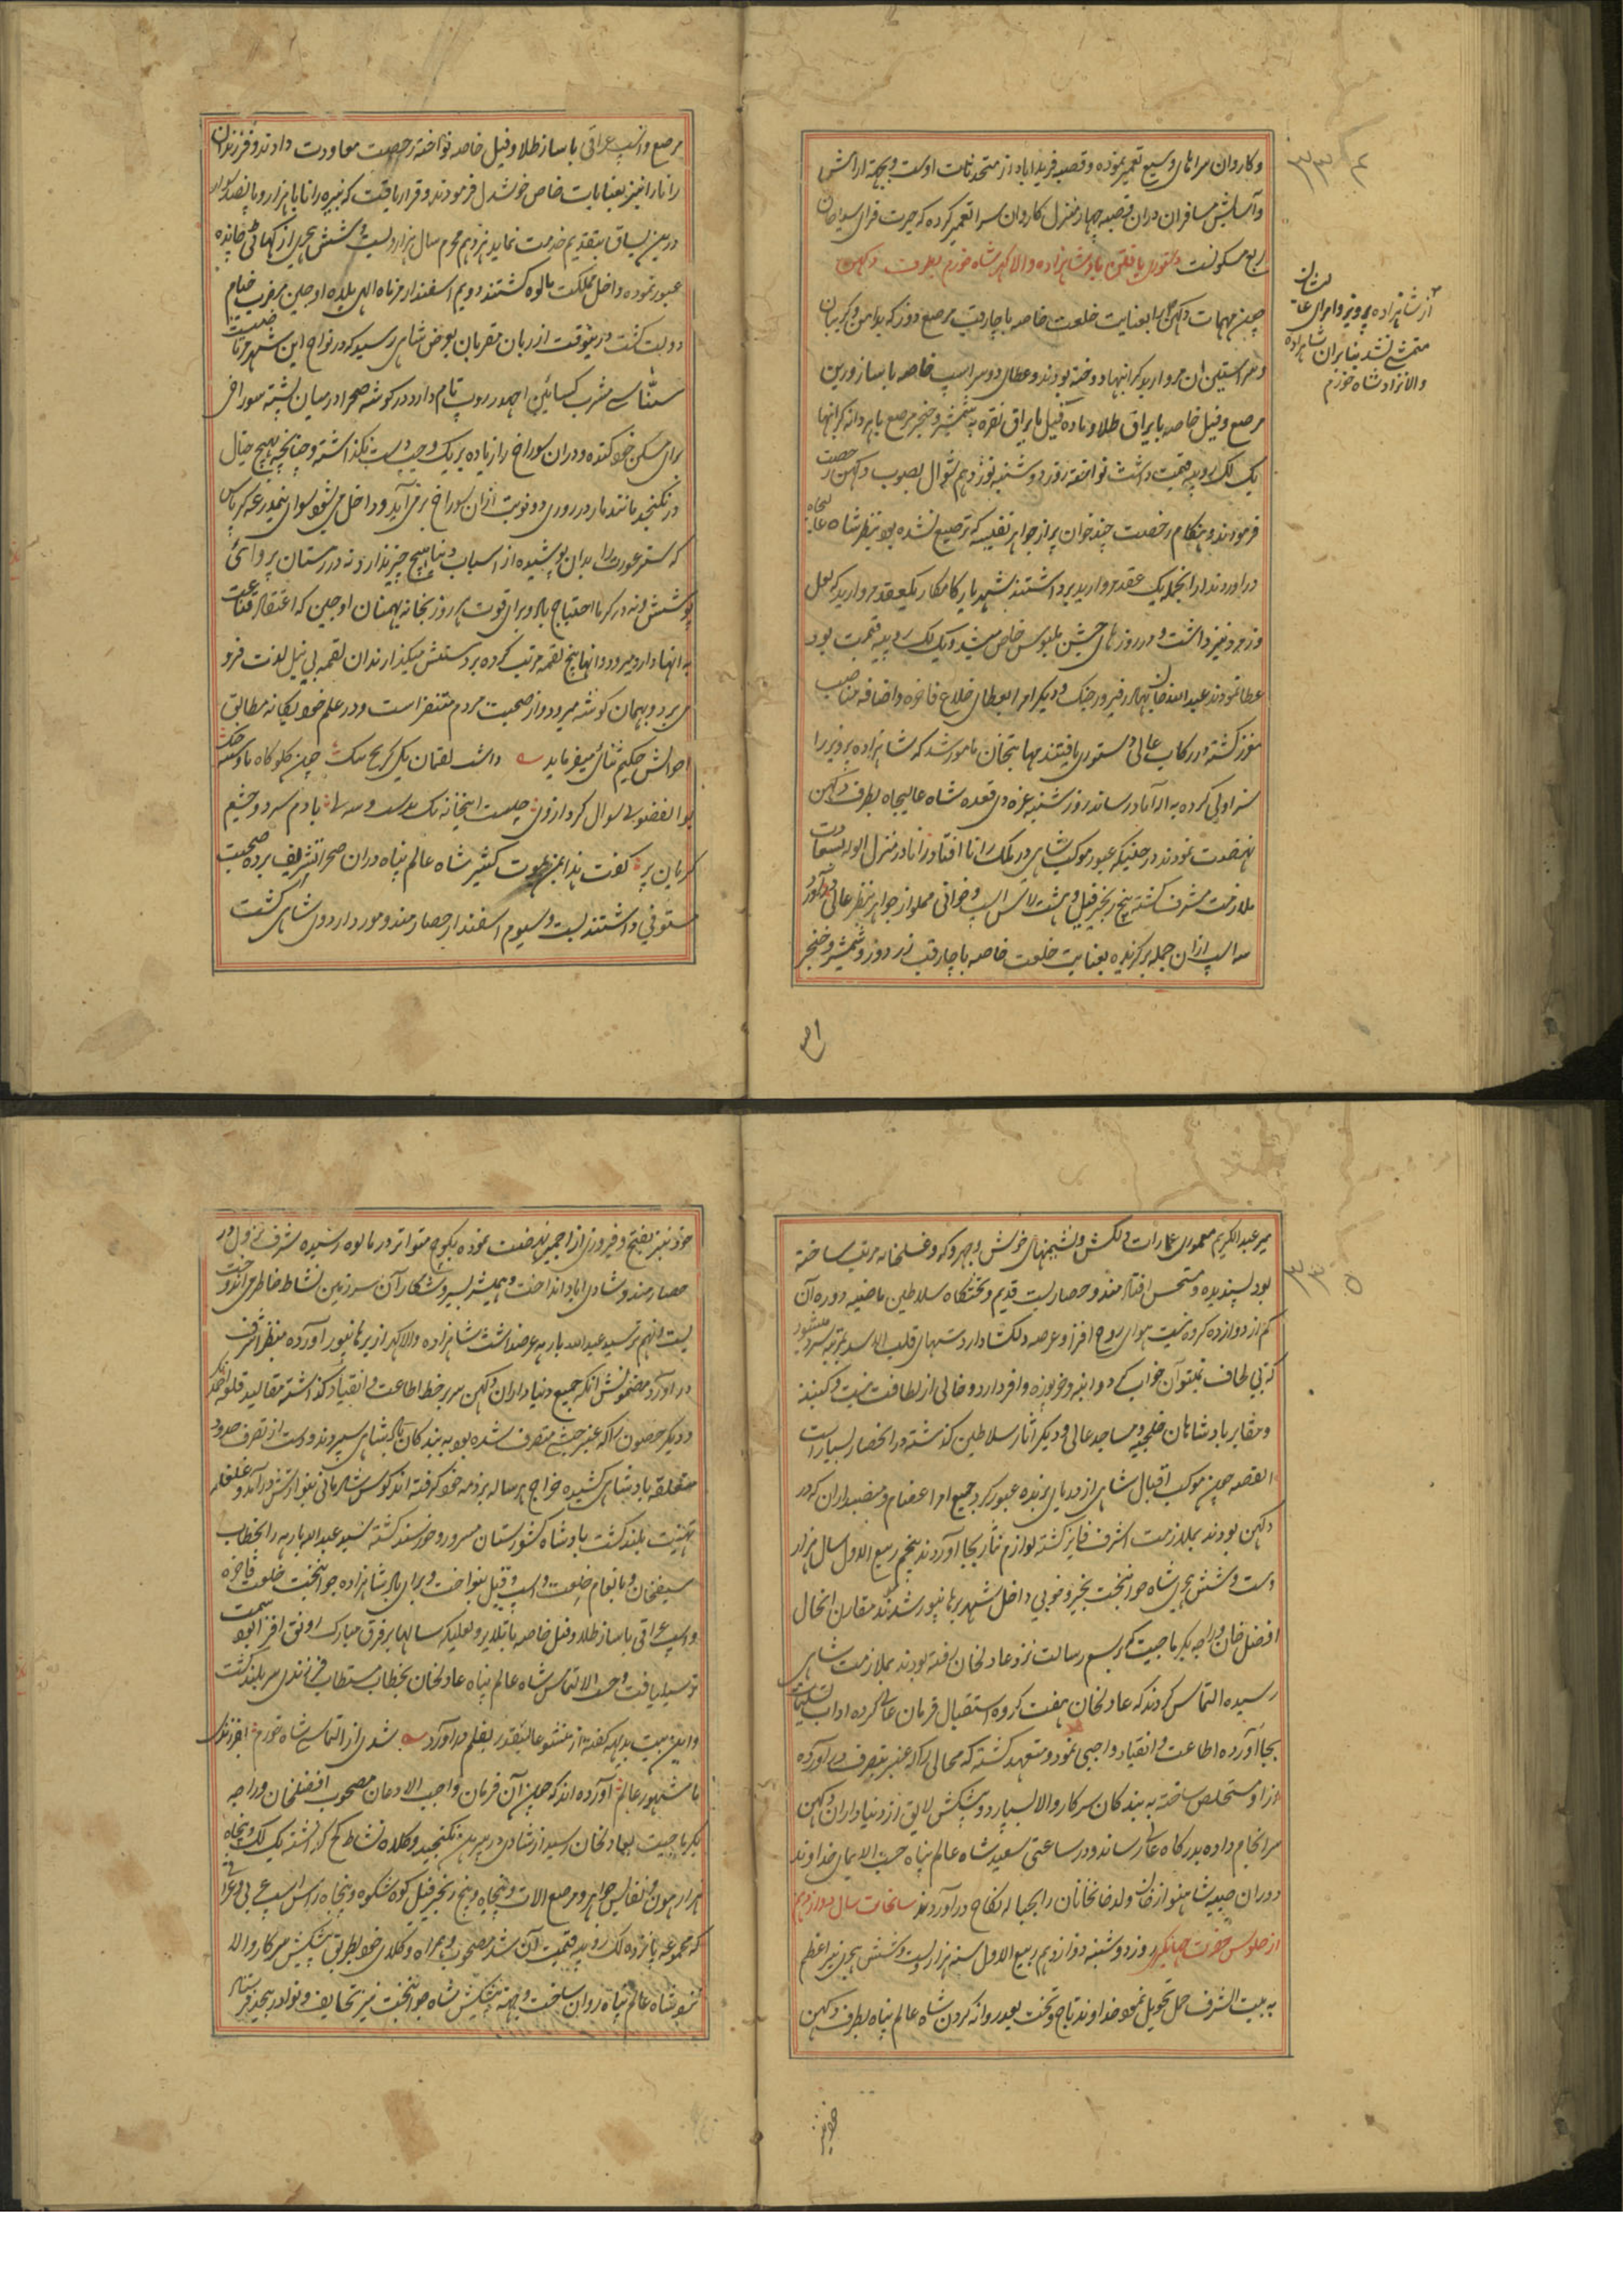 و کاروان سراهای وسیع تعمیر نموده و قصبه فریداباد از متحدثات اوست و بجهة ارامش
و آسایش مسافران دران قصبه چهار منزل کاروان سرا تعمیر کرده که حیرت فزای سیاحان
ربع مسکونست دستوری یافتن پادشاهزاده والا گهر شاه خورم بطرف دکهن
چون مهمات دکهن
از شاهزاده پرویز و امرای
متمشی نشد بنابران شاهزاده
والانژاد شاه خورم
را بعنایت خلعت خاصه با چارقب مرصع دوز که بدامن و گریبان
و سر استین ان مروارید گرانبها دوخته بودند و عطای دو سر اسپ خاصه با ساز و زین
مرصع و فیل خاصه با یراق طلا و ماده فیل با یراق نقره و شمشیر و خنجر مرصع با پردله گرانبها
یک لک روپیه قیمت داشت نواخته روز دوشنبه نوزدهم شوال بصوب دکهن رخصت
فرمودند و هنگام رخصت چند خوان پر از جواهر نفیسه که ترصیع نشده بود بنظر شاه
دراوردند ازانجمله یک عقد مروارید برداشتند شهریار کامکار یکعقد مروارید که لعل
و زمرد نیز داشت و در روزهای جشن ملبوس خاص میشد و یک لک روپیه قیمت بود
عطا نمودند عبدالله خان بهادر فیروز جنگ و دیگر امرا بعطای خلاع فاخره و اضافه مناصب
مفرز گشته در رکاب عالی دستوری یافتند مهابتخان مامور شد که شاهزاده پرویز را
سزاولی کرده به اله آباد رساند روز شنبه غره ذی قعده شاه عالیجاه بطرف دکهن
نهضت نمودند در حینیکه عبور موکب شاهی در ملک رانا افتاد رانا در منزل
ملازمت مشرف گشته پنج زنجیر فیل و هشت راس اسپ و خوانی مملو از جواهر بنظر عالی درآورد
سه اسپ ازان جمله برگزیده بعنایت خلعت خاصه با چارقب زردوز و شمشیر و خنجر
مرصع و اسپ عراقی با ساز طلا و فیل خاصه نواخته رخصت معاودت دادند و فرزندان
رانا را نیز بعنایات خاص خوشدل فرمودند و قرار یافت که نبیره رانا با هزار و پانصد سوار
درین یساق بتقدیم خدمت نماید نزدهم محرم سال هزار و بیست و شش هجری از گهاتی چانده
عبور نموده داخل مملکت مالوه گشتند دویم اسفندارمز ماه الهی بلده اوجین مضرب خیام
دولت گشت درینوقت از زبان مقربان بعرض شاهی رسید که در نواح این شهر مرتاض
سناسی مشرب کسائین اچهدروپ نام دارد در گوشه صحرا در میان پشته سوراخی
برای مسکن خود کنده و دران سوراخ را زیاده بر یک وجب
در نگنجد مانند مار در روزی دو نوبت ازان سوراخ برمی آید و داخل می شود سوای نیمدرعه کرپاس
که ستر عورت را بدان پوشیده از اسباب دنیا هیچ چیز ندارد نه در زمستان پروائی
پوشش و نه در گرما احتیاج باد و برای قوت هر روز بخانه بهمنان اوجین که اعتقاد
به انها دارد میرود و انها پنج لقمه مرتب کرده بر دستش میگذارند ان لقمه بی نیل لذت فرو
می برد و بهمان گوشه میرود و از صحبت مردم متنفر است و در علم خود یگانه مطابق
احوالش حکیم ثنائی میفرماید داشت لقمان یکی کریچ تنگ چون گلوگاه نای و سینه چنگ
بوالفضولی سوال کرد از وی چیست اینخانه یک بدست و سه پی با دم سرد و چشم
گریان پر گفت هذا لمن یموت کثیر شاه عالم پناه دران صحرا تشریف برده صحبت
مستوفی داشتند بیست و سیوم اسفندار حصار مندو مورد اردوی شاهی گشت
میر عبدالکریم معموری عمارات دلکش و نشیمنهای خوش و جهروکه و غسلخانه مرتب ساخته
بود پسندیده و مستحسن افتاد مندو حصاریست قدیم و تختگاه سلاطین ماضیه دوره آن
کم از دوازده کروه نیست هوای روح افزا و عرصه دلکشا دارد شبهای
که بی لحاف نمیتوان خواب کرد و انبه و خربوزه وافر دارد و خالی از لطافت نیست و گنبد
و مقابر پادشاهان خلجیه و مساجد عالی و دیگر آثار سلاطین گذشته در انحصار بسیار است
القصه چون موکب اقبال شاهی از دریای نربده عبور کرد جمیع امرا عظام و منصبداران که در
دکهن بودند بملازمت اشرف فایز گشته لوازم نثار بجا آوردند پنجم ربیع الاول سال هزار
و بیست و شش هجری شاه جوانبخت بخیر و خوبی داخل شهر برهانپور شدند مقارن انحال
افضل خان و راجه بکرماجیت که برسم رسالت نزد عادلخان رفته بودند بملازمت شاهی
رسیده التماس کردند که عادلخان هفت کروه استقبال فرمان عالی کرده اداب تسلیمات
بجا آورده اطاعت و انقیاد واجبی نمود و متعهد گشته که محالی را که عنبر بتصرف در آورده
از او مستخلص ساخته به بندگان سرکار والا سپارد و پیشکش لایق از دنیاداران دکهن
سرانجام داده بدرگاه عالی رساند و در ساعتی سعید شاه عالم پناه حسب الایمای خداوند
دوران صبیه شاهنواز خان ولد خانخانان را بحباله نکاح درآوردند سانحات سال دوازدهم
از جلوس حضرت جهانگیر روز دوشنبه دوازدهم ربیع الاول سنه هزار و بیست و شش هجری نیر اعظم
به بیت الشرف حمل تحویل نمود خداوند تاج و تخت بعد روانه کردن شاه عالم پناه بطرف دکهن
خود نیز بفتح و فیروزی از اجمیر نهضت نموده بکوچ متواتر در مالوه رسیده شرف نزول در
حصار مندو شادی اباد انداخت و همیشه بسیر و شکار آن سرزمین نشاط خاطر می اندوخت
بیست و نهم تیر سید عبدالله بارهه عرضداشت شاهزاده والا گهر از برهانپور آورده بنظر اشرف
در آورد مضمونش آنکه جمیع دنیاداران دکهن سر بر خط اطاعت و انقیاد گذاشته مقالید قلعه
و دیگر حصون را که عنبر حبشی متصرف شده بود به بندگان پادشاهی سپردند و دست از تصرف حدود
متعلقه پادشاهی کشیده خراج هر ساله بر ذمه خود گرفته اند کوس شادمانی بنوازش درآمد و غلغله
تهنیت بلند گشت پادشاه کشورستان مسرور و خورسند گشته سید عبدالله بارهه را بخطاب
سیفخان و بانعام خلعت و اسپ و فیل بنواخت و برای پادشاهزاده جوانبخت خلعت فاخره
و اسپ عراقی با ساز طلا و فیل خاصه
توسید یافت و حسب الالتماس شاه عالم پناه عادلخان بخطاب مستطاب فرزندی سربلند گشت
و این بیت بدیهه گفته از بقلم در آورد شدی از التماس شاه خورم بفرزندی
ما مشهور عالم آورده اند که چون آن فرمان واجب الاذعان مصحوب افضلخان و راجه
بکرماجیت بعادلخان رسید از شادی در پیرهن نگنجید و کلاه نشاط کج گذاشته یک لک و پنجاه
هزار هون و نفایس جواهر و مرصع الات و پنجاه و پنج زنجیر فیل کوه شکوه و پنجاه راس اسپ عربی و عراقی
که مجموعه پانزده لک روپیه قیمت آن شد مصحوب و همراه وکلای خود بطریق پیشکش سرکار والا
شاه عالم پناه روان ساخت و همه پیشکش شاه جوانبخت نیز تحایف و نوادر